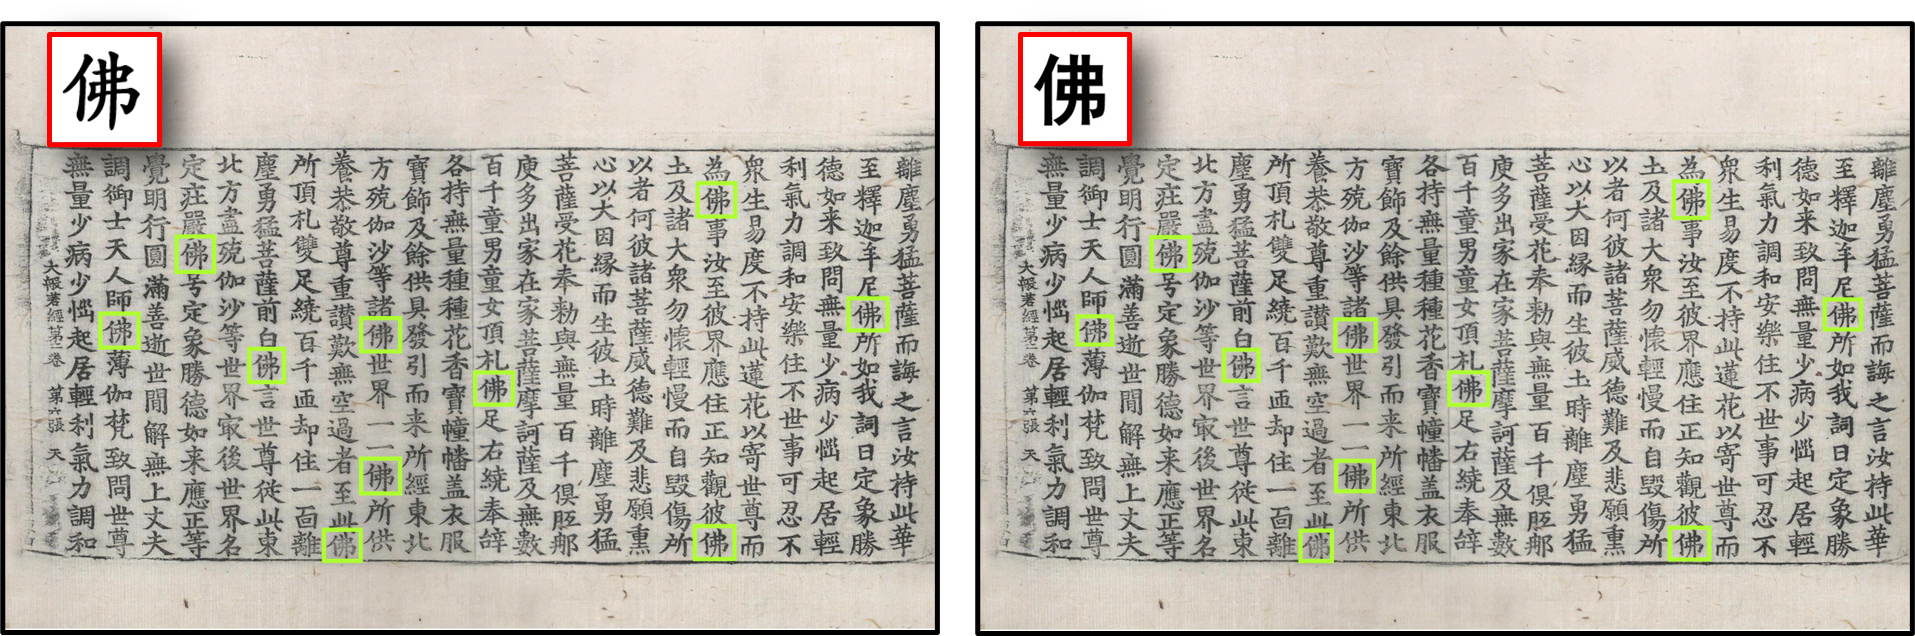 佛
離塵勇猛菩薩而誨之言汝持此華
至釋迦牟尼佛所如我詞曰定象勝
德如来致問無量少病少惱起居輕
利氣力調和安樂住不世事可忍不
衆生易度不持此蓮花以寄世尊而
為佛事汝至彼界應住正知觀彼佛
土及諸大衆勿懷輕慢而自毀傷所
以者何彼諸菩薩威德難及悲願熏
心以大因縁而生彼土時離塵勇猛
菩薩受花奉勑與無量百千俱胝那
庾多出家在家菩薩摩訶薩及無數
百千童男童女頂札佛足右繞奉辝
各持無量種種花香寶幢幡盖衣服
寶飾及餘供具發引而来所經東北
方殑伽沙等諸佛世界一一佛所供
養恭敬尊重讃歎無空過者至此佛
所頂札雙足繞百千匝却住一面離
塵勇猛菩薩前白佛言世尊從此東
北方盡殑伽沙等世界㝡後世界名
定庄嚴佛号定象勝德如来應正等
覺明行圓滿善逝世間解無上丈夫
調御士天人師佛薄伽梵致問世尊
無量少病少惱起居輕利氣力調和
大般若經第二卷 第六張 天
佛
離塵勇猛菩薩而誨之言汝持此華
至釋迦牟尼佛所如我詞曰定象勝
德如来致問無量少病少惱起居輕
利氣力調和安樂住不世事可忍不
衆生易度不持此蓮花以寄世尊而
為佛事汝至彼界應住正知觀彼佛
土及諸大衆勿懷輕慢而自毀傷所
以者何彼諸菩薩威德難及悲願熏
心以大因縁而生彼土時離塵勇猛
菩薩受花奉勑與無量百千俱胝那
庾多出家在家菩薩摩訶薩及無數
百千童男童女頂札佛足右繞奉辝
各持無量種種花香寶幢幡盖衣服
寶飾及餘供具發引而来所經東北
方殑伽沙等諸佛世界一一佛所供
養恭敬尊重讃歎無空過者至此佛
所頂札雙足繞百千匝却住一面離
塵勇猛菩薩前白佛言世尊從此東
北方盡殑伽沙等世界㝡後世界名
定庄嚴佛号定象勝德如来應正等
覺明行圓滿善逝世間解無上丈夫
調御士天人師佛薄伽梵致問世尊
無量少病少惱起居輕利氣力調和
大般若經第二卷 第六張 天